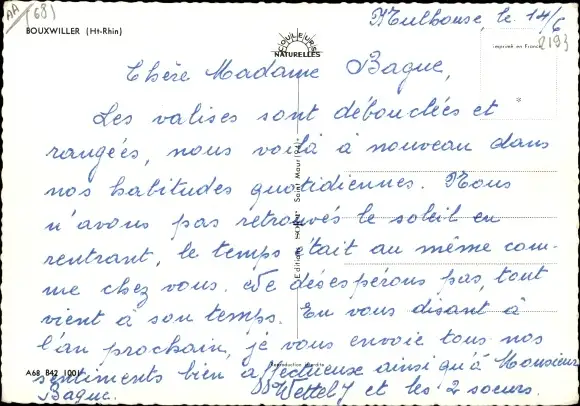 AA (68)
BOUXWILLER (Ht-Rhin)
COULEURS
NATURELLES
Mulhouse, le 14/6
imprimé en France
2193
Chère Madame Bague,
Les valises sont débouclées et
rangées, nous voilà à nouveau dans
nos habitudes quotidiennes. Nous
n'avons pas retrouvés le soleil en
rentrant, le temps était au même com-
me chez vous. Ne désespérons pas, tout
vient à son temps. En vous disant à
l'an prochain, je vous envoie tous nos
sentiments bien affectueuse ainsi qu'à Monsieur
Bague.
et les 2 soeurs.
Editions
Saint Maur
A68 B42 1001